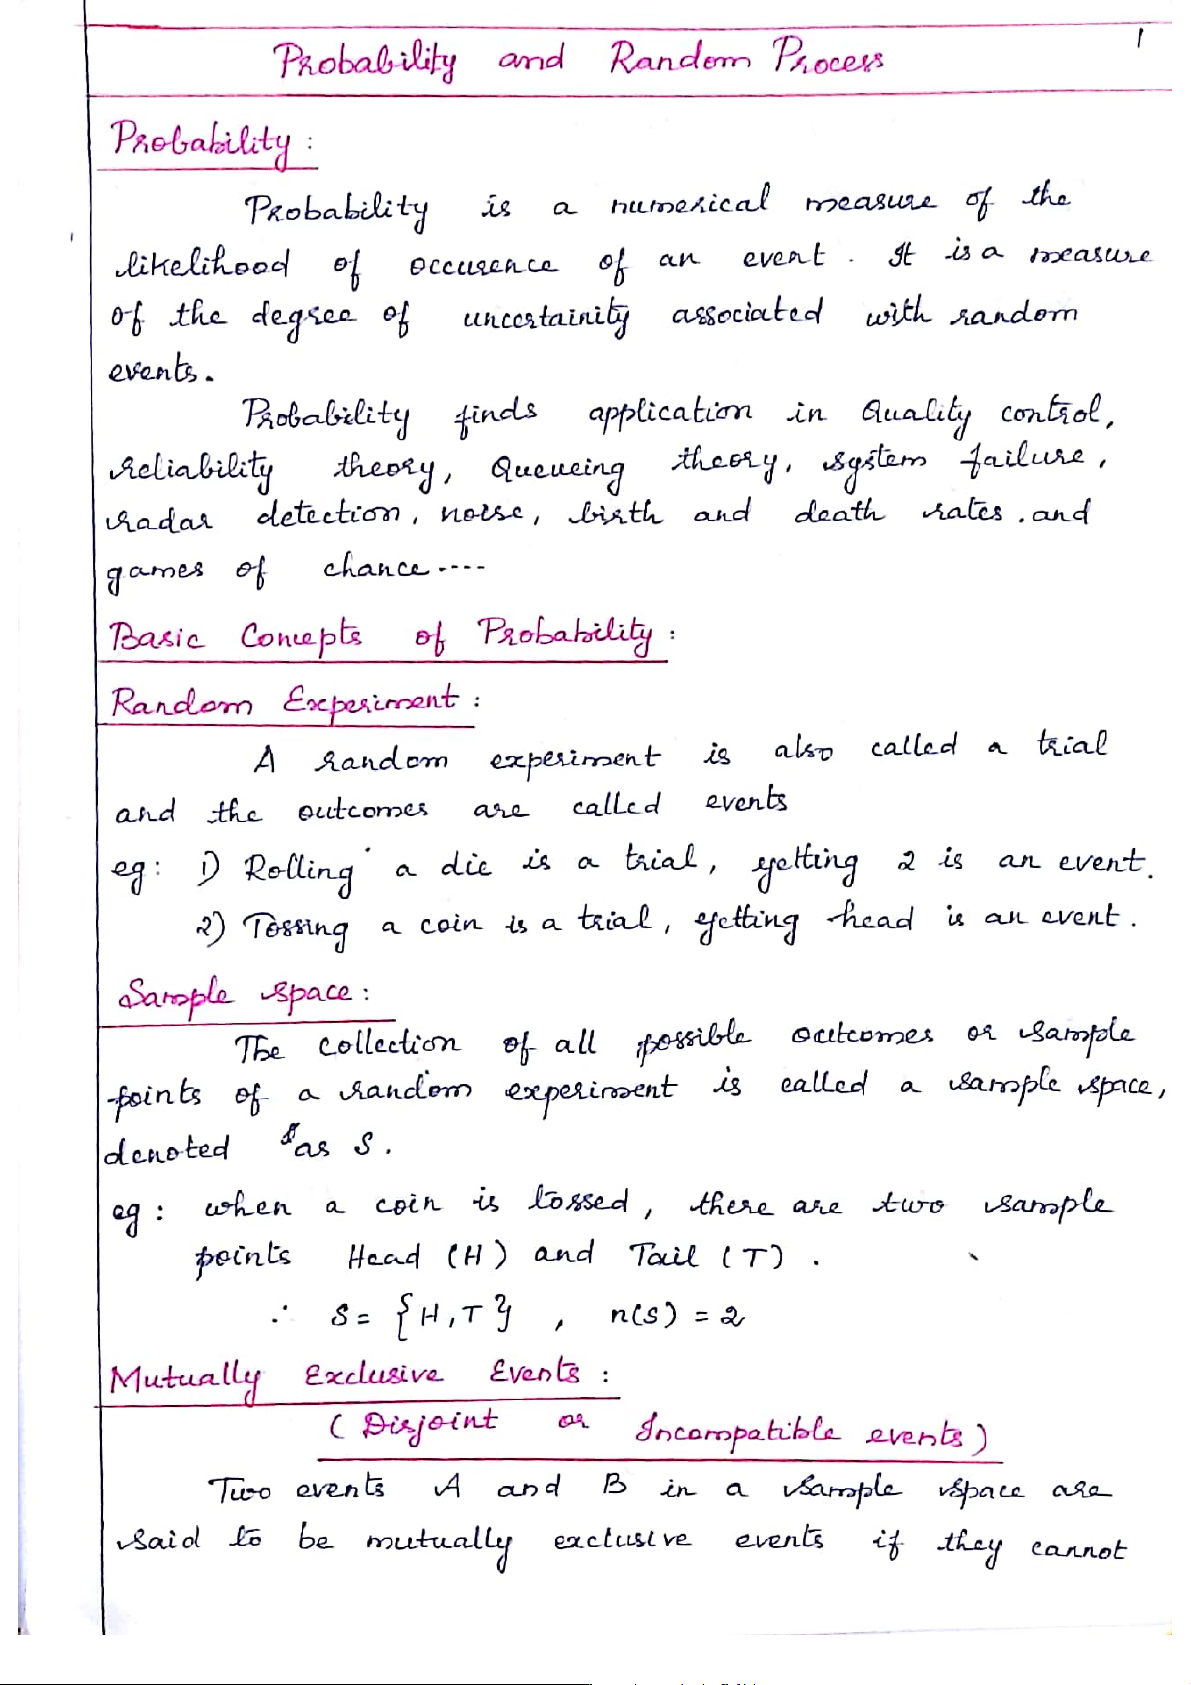 1
Probability and Random Process
Probability :
Probability is a numerical measure of the
likelihood of occurence of an event . It is a measure
of the degree of uncertainity associated with random
events.
Probability finds application in Quality control,
reliability theory, Queueing theory, system failure,
radar detection, noise, birth and death rates . and
games of chance ----
Basic Concepts of Probability :
Random Experiment :
A random experiment is also called a trial
and the outcomes are called events
eg : 1) Rolling a die is a trial, getting 2 is an event.
2) Tossing a coin is a trial, getting head is an event.
Sample space :
The collection of all possible outcomes or sample
points of a random experiment is called a sample space,
denoted as S.
eg : when a coin is tossed, there are two sample
points Head (H) and Tail (T) .
∴ S = {H,T} , n(S) = 2
Mutually Exclusive Events :
(Disjoint or Incompatible events)
Two events A and B in a sample space are
said to be mutually exclusive events if they cannot